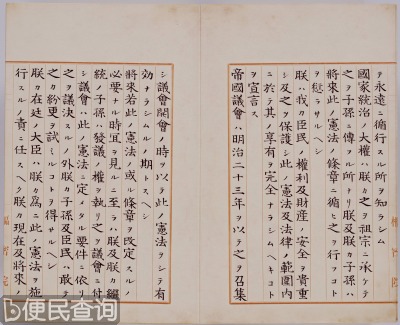 ヲ永遠ニ循行スル所ヲ知ラシム
國家統治ノ大權ハ朕カ之ヲ祖宗ニ承ケテ
之ヲ子孫ニ傳フル所ナリ朕及朕カ子孫ハ
將來此ノ憲法ノ條章ニ循ヒ之ヲ行フコト
ヲ愆ラサルヘシ
朕ハ我カ臣民ノ權利及財產ノ安全ヲ貴重
シ及之ヲ保護シ此ノ憲法及法律ノ範圍內
ニ於テ其ノ享有ヲ完全ナラシムヘキコト
ヲ宣言ス
帝國議會ハ明治二十三年ヲ以テ之ヲ召集
シ議會開會ノ時ヲ以テ此ノ憲法ヲシテ有
効ナラシムルノ期トスヘシ
將來若此ノ憲法ノ或ル條章ヲ改定スルノ
必要ナル時宜ヲ見ルニ至ラハ朕及朕カ繼
統ノ子孫ハ發議ノ權ヲ執リ之ヲ議會ニ付
シ議會ハ此ノ憲法ニ定メタル要件ニ依リ
之ヲ議決スルノ外朕カ子孫及臣民ハ敢テ
之カ紛更ヲ試ミルコトヲ得サルヘシ
朕カ在廷ノ大臣ハ朕カ爲ニ此ノ憲法ヲ施
行スルノ責ニ任スヘク朕カ現在及將來ノ
便民查询